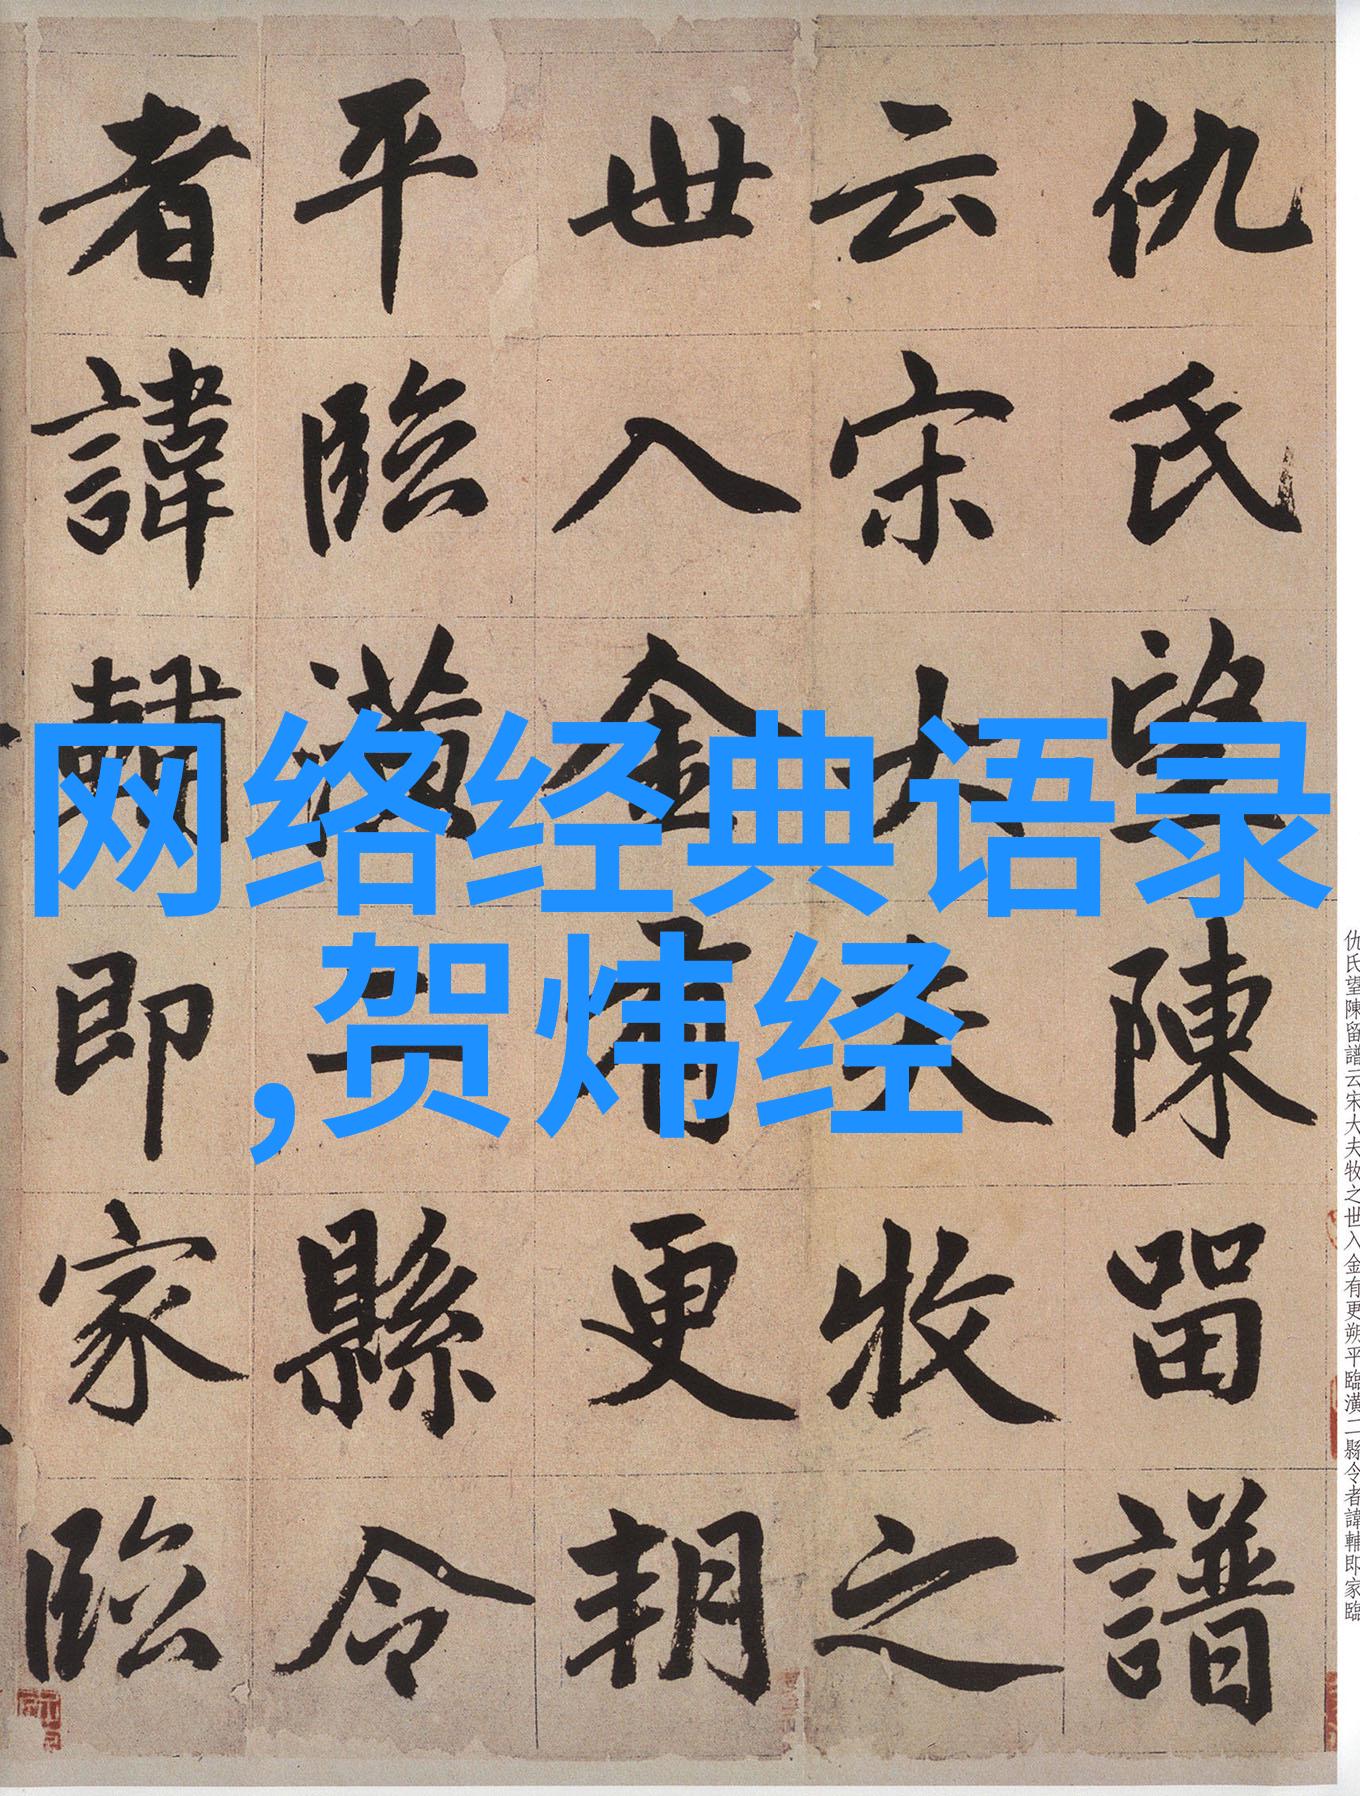 网络经典语录
,贺炜经
仇氏望陳留譜
云宋大夫牧之
世入金有更朔
平臨潢二縣令
者諱輔即家臨
仇氏望陳留譜云宋大夫牧之世入金有更朔平臨潢二縣令者諱輔即家臨